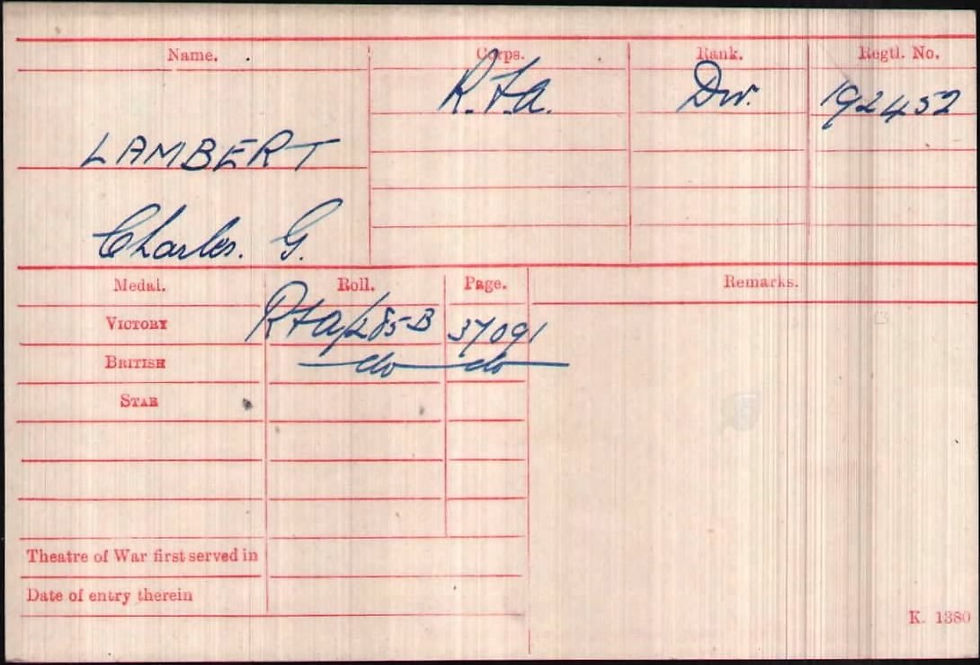 Name. Corps. Rank. Regtl. No.
R.F.A. Dvr. 192452
LAMBERT
Charles. G.
Medal. Roll. Page. Remarks.
VICTORY RFA/285-B 37091
BRITISH do do
STAR
Theatre of War first served in
Date of entry therein
K. 1380